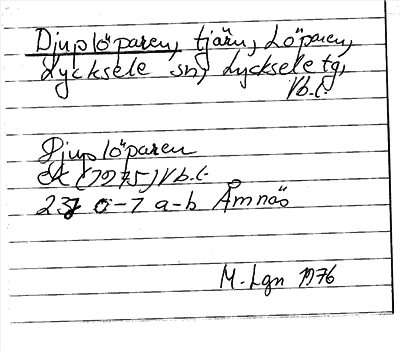 Djuplöparen, tjärn, Löparen,
Lycksele sn, Lycksele tg,
Vb.l.
Djuplöparen
Ek (1975) Vb.l.
23J 0-1 a-b Åmnäs
M. Lgn 1976